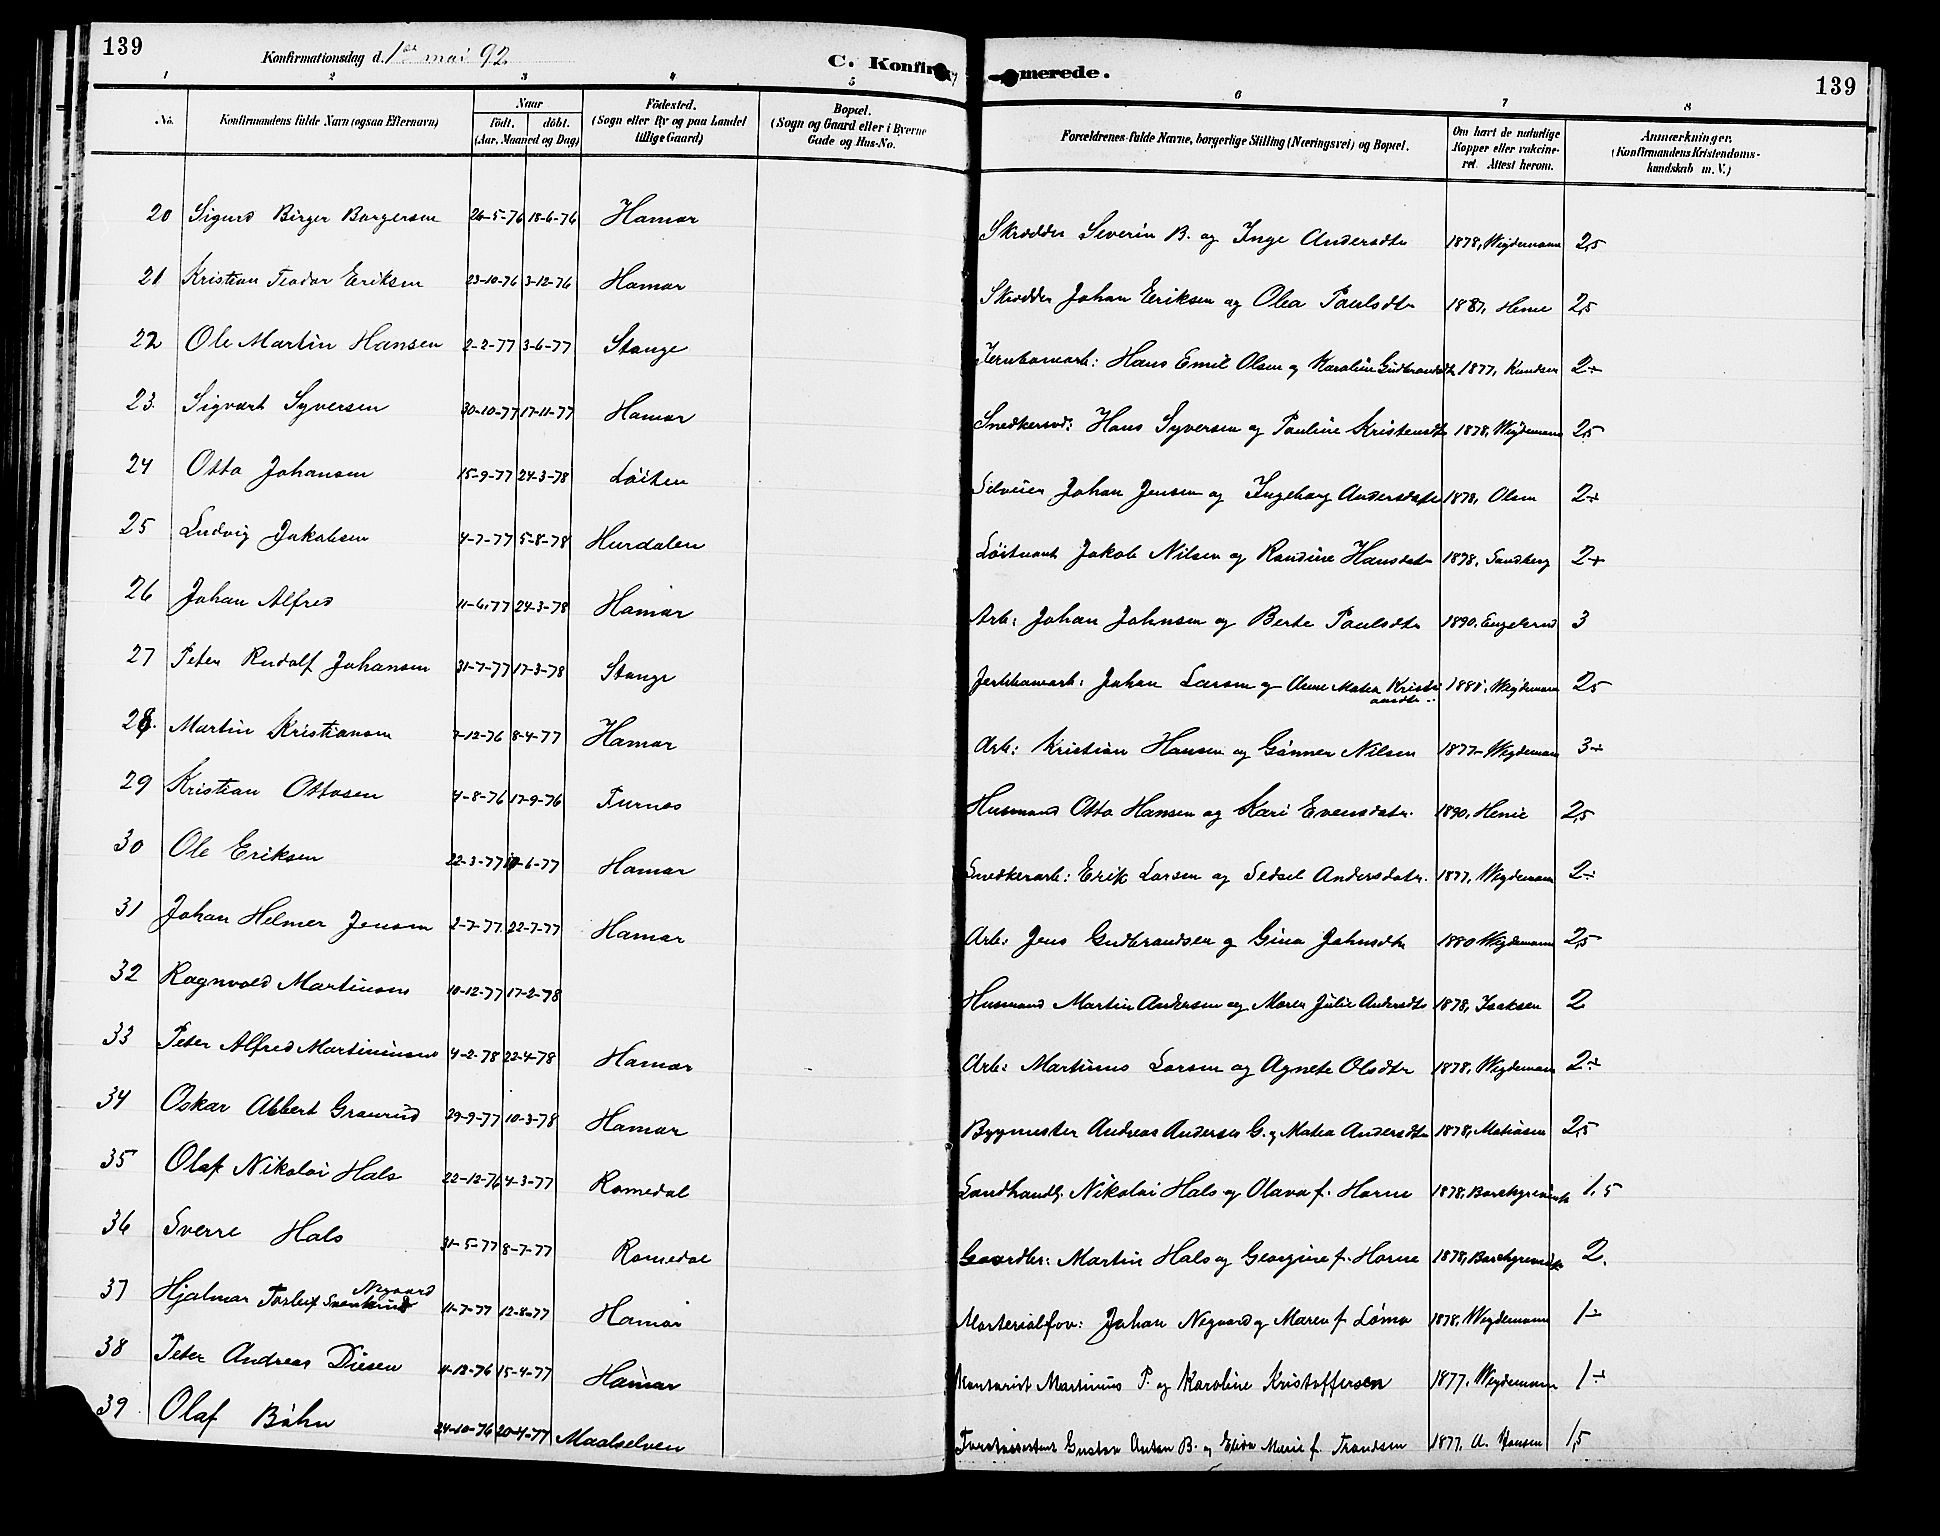 139
Konfirmationsdag d. 1ste mai 92.
C. Konfirmerede.
139
1 2 3 4 5 6 7 8
No.
Konfirmandens fulde Navn (ogsaa Efternavn)
Naar
födt. döbt.
(Aar, Maaned og Dag)
Födested.
(Sogn eller By og paa Landet
tillige Gaard)
Bopæl.
(Sogn og Gaard eller i Byerne
Gade og Hus-No.
Forældrenes fulde Navne, borgerlige Stilling (Næringsvei) og Bopæl.
Om havt de naturlige
Kopper eller vakcine-
ret. Attest herom.
Anmærkninger.
(Konfirmandens Kristendoms-
kundskab m. V.)
20 Sigurd Birger Borgersen 26-5-76 18-6-76 Hamar Skrædder Severin B. og Inge Andersdtr 1878, Wegdemann 2,5
21 Kristian Teodor Eriksen 23-10-76 3-12-76 Hamar Skrædder Johan Eriksen og Olea Paulsdtr 1887, Henie 2,5
22 Ole Martin Hansen 2-2-77 3-6-77 Stange Jernbanearb: Hans Emil Olsen og Karoline Gudbrandsdtr 1877, Knudsen 2÷
23. Sigvart Syversen 30-10-77 17-11-77 Hamar Snedkersvd: Hans Syversen og Pauline Kristensdtr 1878, Wegdemann 2,5
24 Otto Johansen 15-9-77 24-3-78 Löiten Johan Jensen og Ingeborg Andersdatr 1878, Olsen 2÷
25 Ludvig Jakobsen 4-7-77 5-8-78 Hurdalen Löitnant Jakob Nilsen og Randine Hansdatr 1878, Sandberg 2+
26 Johan Alfred 11-6-77 24-3-78 Hamar Arb: Johan Johnsen og Berte Paulsdtr 1890, Engelsrud 3
27 Peter Rudolf Johansen 31-7-77 17-3-78 Stange Jernbanearb: Johan Larsen og Anne Matea Kristi
ansdtr 1881, Wegdemann 2,5
28. Martin Kristiansen 7-12-76 8-4-77 Hamar Arb: Kristian Hansen og Gönner Nilsen 1877- Wegdemann 3÷
29 Kristian Ottosen 4-8-76 17-9-76 Furnes Husmand Otto Hansen og Kari Evensdatr. 1890, Henie 2,5
30 Ole Eriksen 22-3-77 10-6-77 Hamar Snedkerarb: Erik Larsen og Sedsel Andersdatr. 1877, Wegdemann 2÷
31 Johan Helmer Jensen 2-7-77 22-7-77 Hamar Arb: Jens Gudbrandsen og Gina Johnsdtr 1880 Wegdemann 2,5
32 Ragnvald Martinsen 10-12-77 17-2-78 Husmand Martin Andersen og Maren Julie Andersdtr 1878, Isaksen 2
33 Peter Alfred Martiniusen 4-2-78 22-4-78 Hamar Arb: Martinus Larsen og Agnete Olsdtr 1878, Wegdemann 2÷
34 Oskar Albert Granrud 29-9-77 10-3-78 Hamar Bygmester Andreas Andersen G. og Matea Andersdtr 1878, Matiasen 2,5
35 Olaf Nikolai Hals 22-12-76 4-3-77 Romedal Landhandl: Nikolai Hals og Olava f. Horne 1878, Borchgrevink 1,5
36 Sverre Hals 31-5-77 8-7-77 Romedal Gaardbr: Martin Hals og Georgine f. Horne 1878, Borchgrevink 2.
37 Hjalmar Torleif Svenkerud Negaard 11-7-77 12-8-77 Hamar Materialforv: Johan Negaard og Maren f. Lömo 1878, Wegdemann 1÷
38 Peter Andreas Diesen 11-12-76 15-4-77 Hamar Kontorist Martinus P. og Karoline Kristoffersen 1877, Wegdemann 1÷
39 Olaf Böhn 24-10-76 20-4-77 Maalselven Forstassistent Gustav Anton B. og Elida Marie f. Trondsen 1877, A. Hansen 1,5